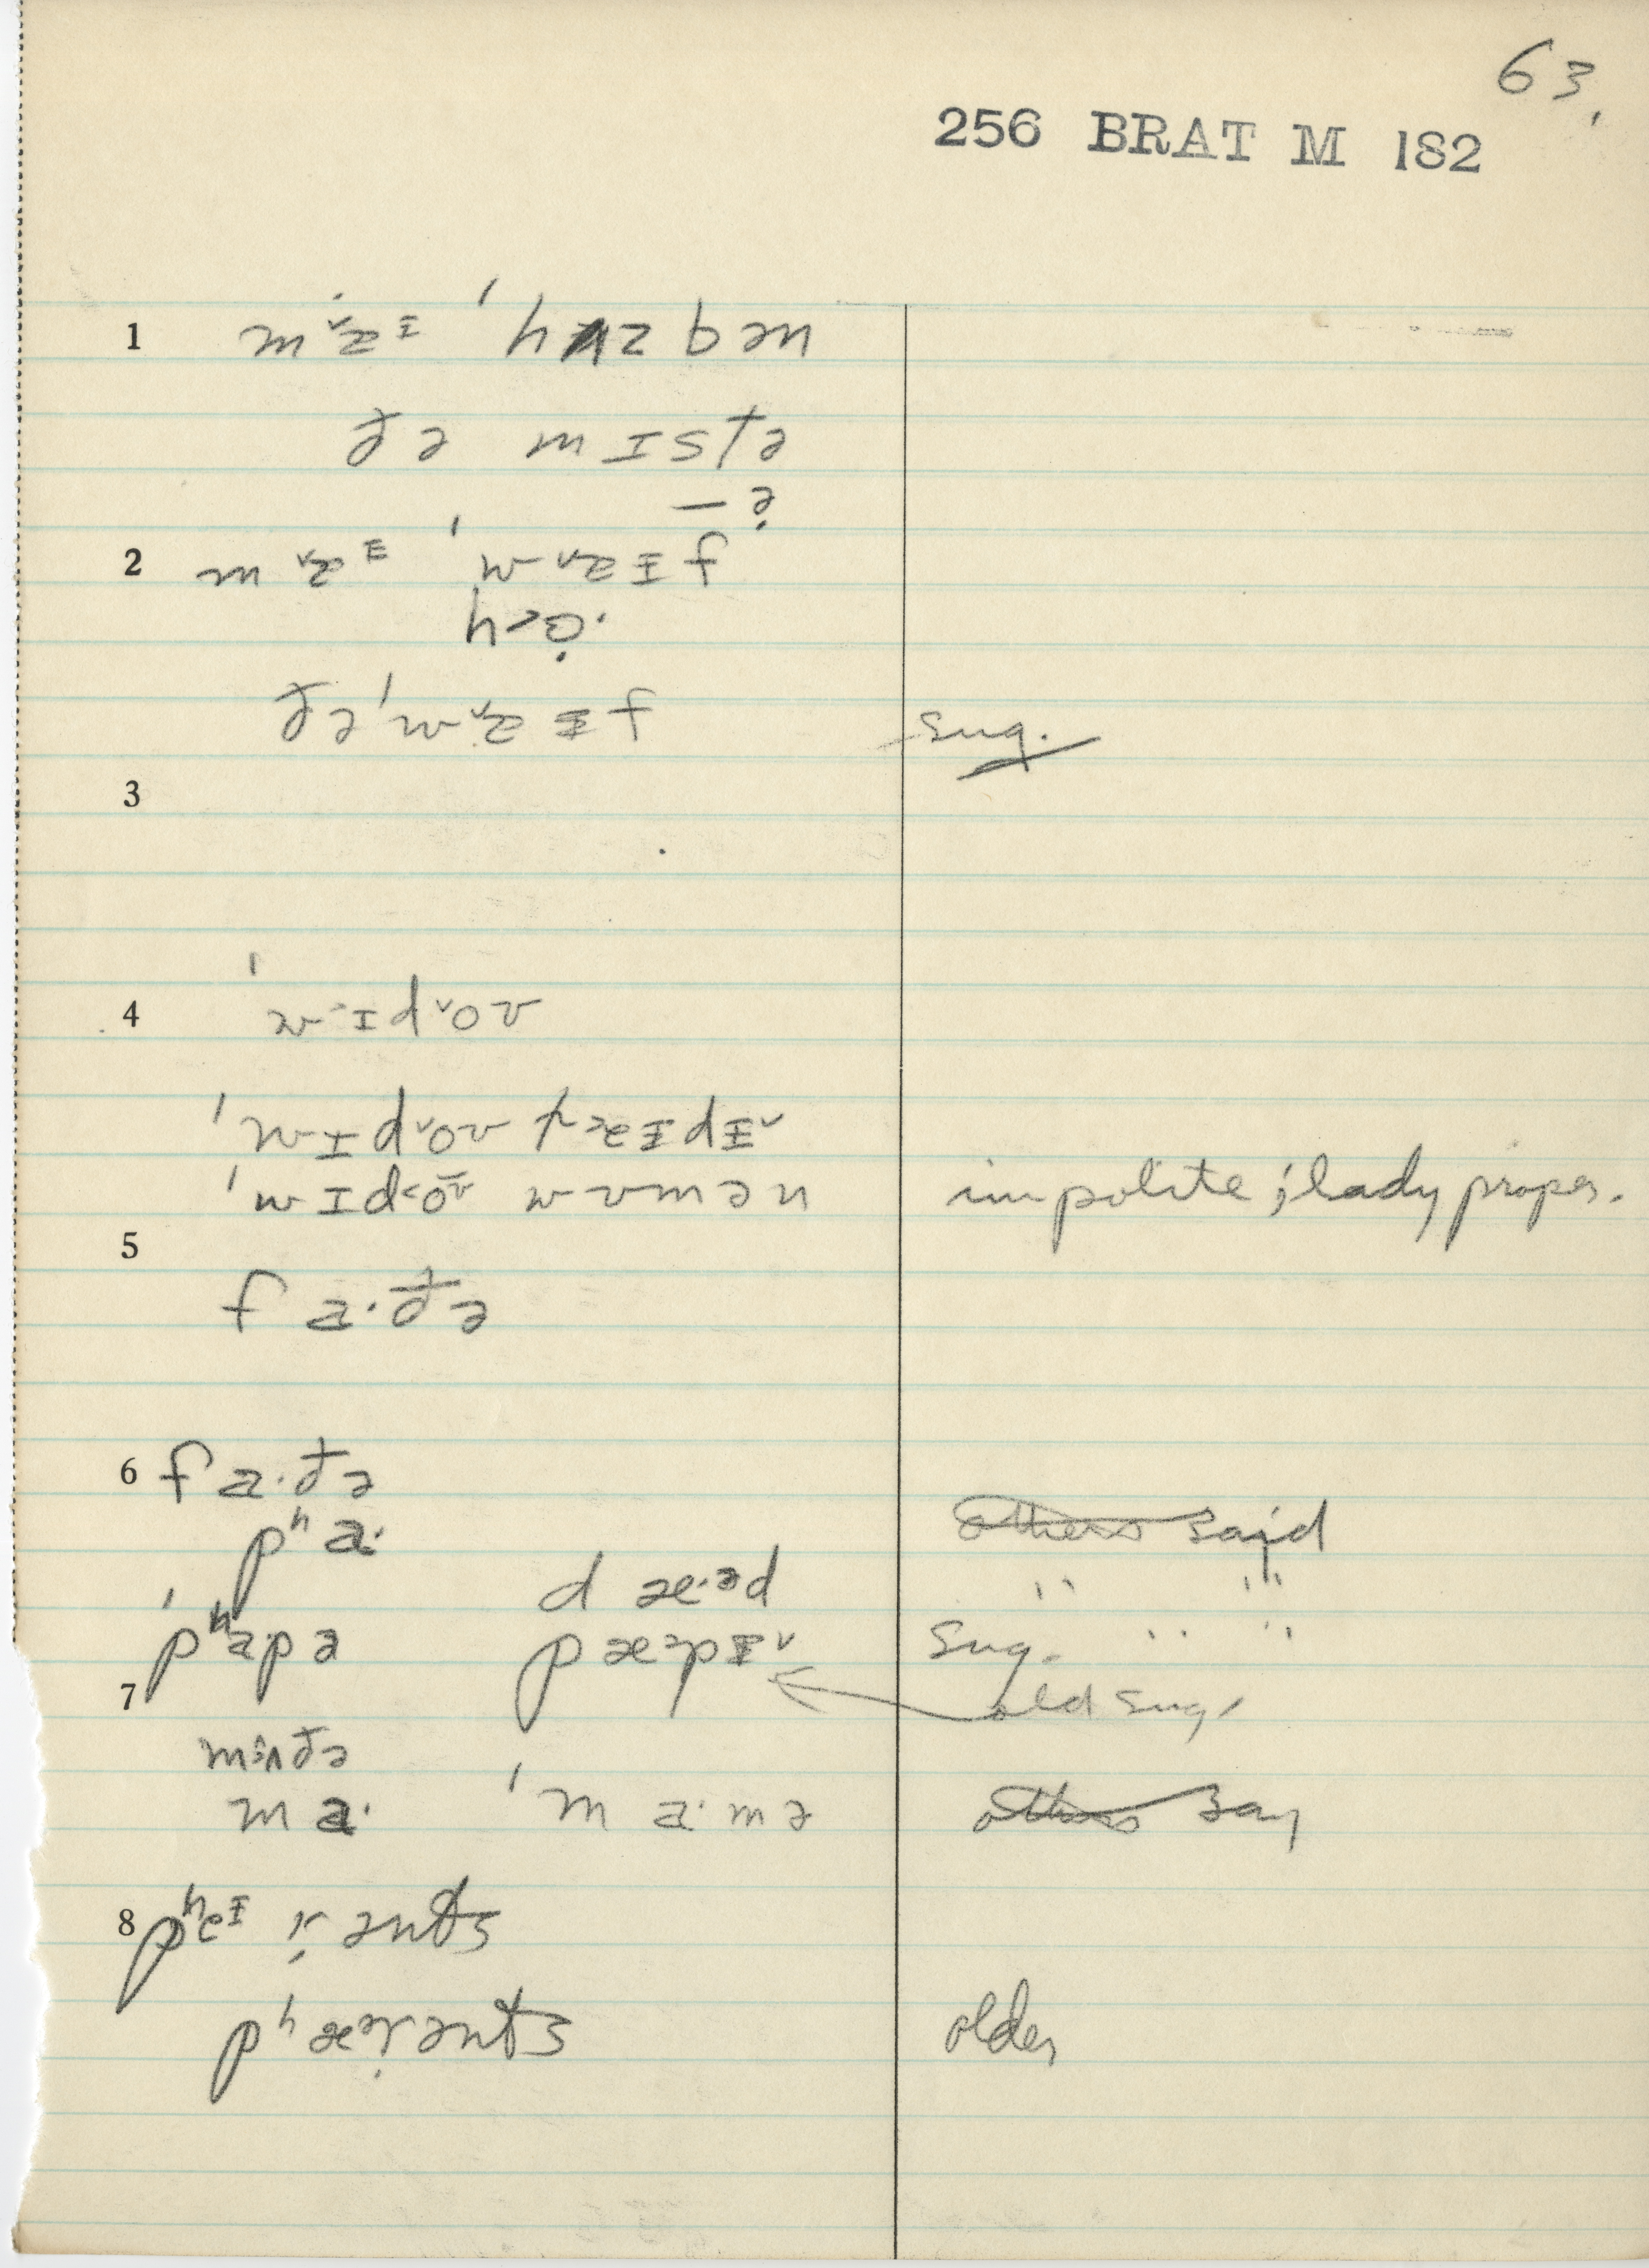 63.
256 BRAT M 182
1 ma˅ᵻ ˈhʌzbən
ðə mɪstə
— ə̣
2 ma˅ᵻ ˈwa˅ᵻf
ðə ˈwa˅ᵻf sug.
3
4 ˈwɪd˅oʊ
ˈwɪd˅oʊ læᵻdᵻ˅
ˈwɪd˂oʊ wʊmən impolite; lady proper.
5
fa·ðə
6 fa·ðə
pʰa· others said
dæ·ᵊd " "
ˈpʰapə pæᵊpᵻ˅ sug. " "
7 old sug.
mʌðə
ma· ˈma·mə others say
8 pʰeᵻrənts
pʰæᵊrənts older